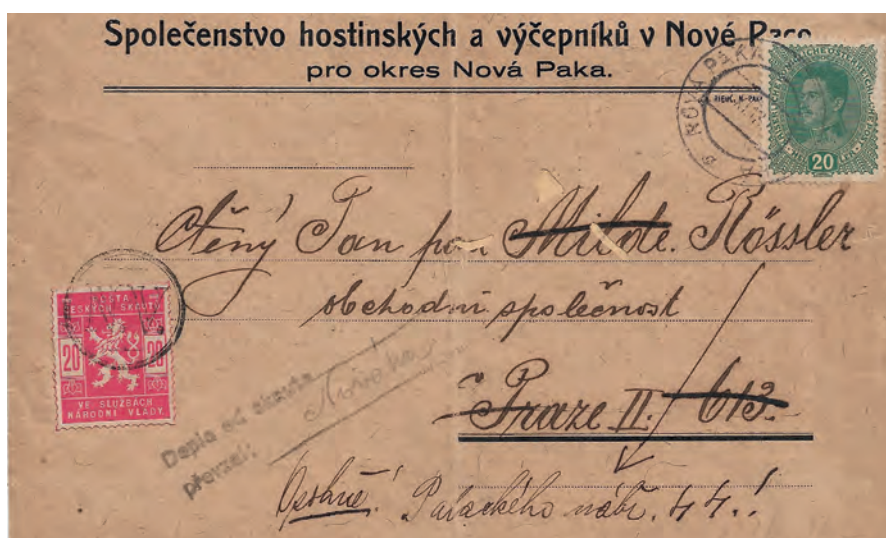 Společenstvo hostinských a výčepníků v Nové Pace
pro okres Nová Paka.
NOVÁ PAKA
20
Ctěný Pan pan Milote. Rössler
obchodní společnost
v Praze II. 613.
Osobně! Palackého nábř. 44.!
POŠTA
ČESKÝCH SKAUTŮ
20 20
VE SLUŽBÁCH
NÁRODNÍ VLÁDY.
Depis od skauta
převzal: Novotna